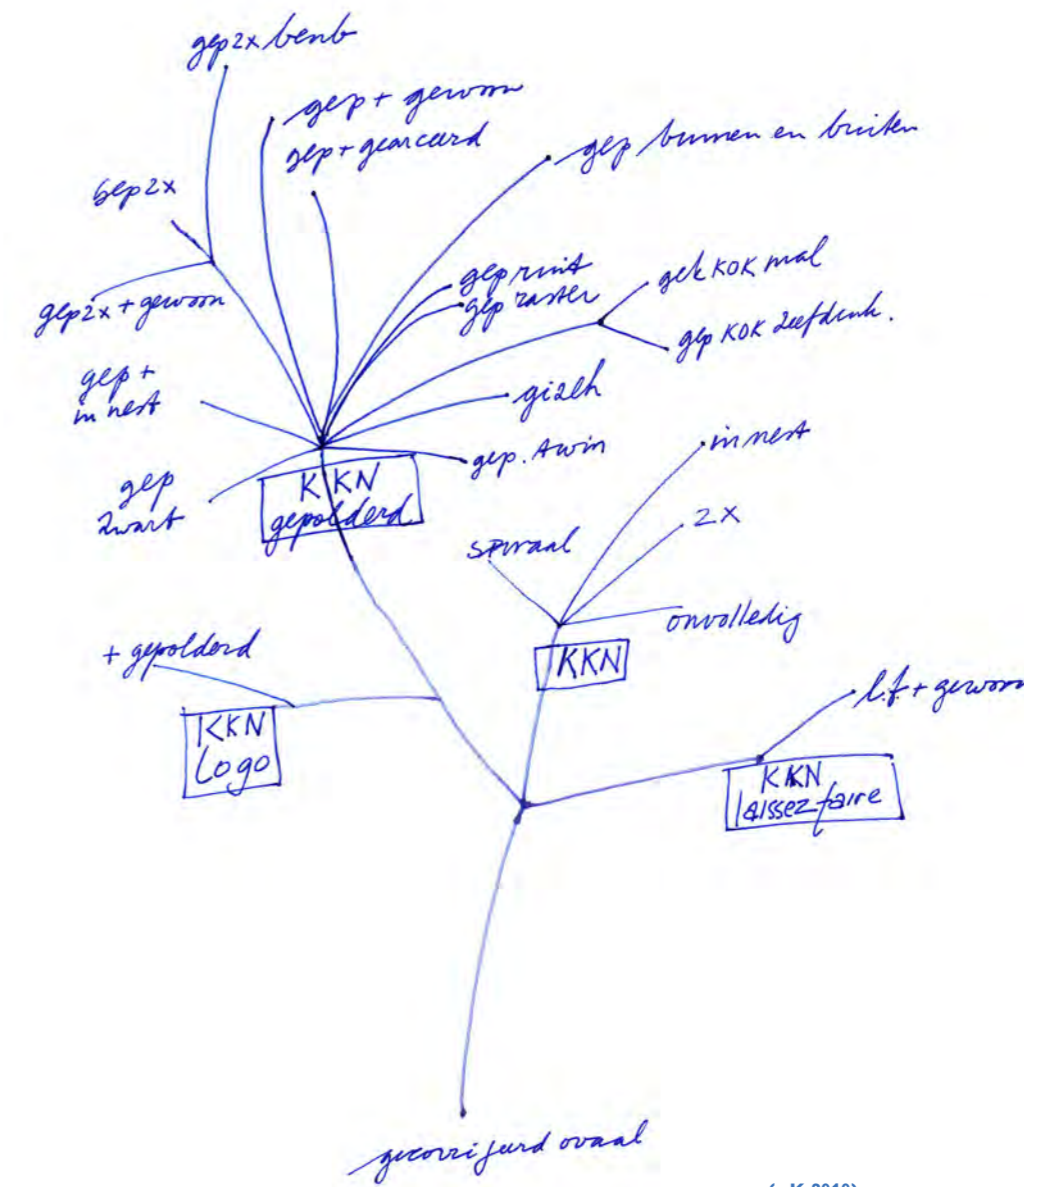 gep 2x benb
gep + gewoon
gep + gearceerd
gep binnen en buiten
gep 2x
gep 2x + gewoon
gep ruit
gep raster
gek KOK mal
gep KOK zeefdruk.
gep +
in nest
gizeh
gep
zwart
gep. Awin
KKN
gepolderd
in nest
2X
spiraal
onvolledig
KKN
+ gepolderd
KKN
Logo
l.f. + gewoon
KKN
laissez faire
gecorrigeerd ovaal